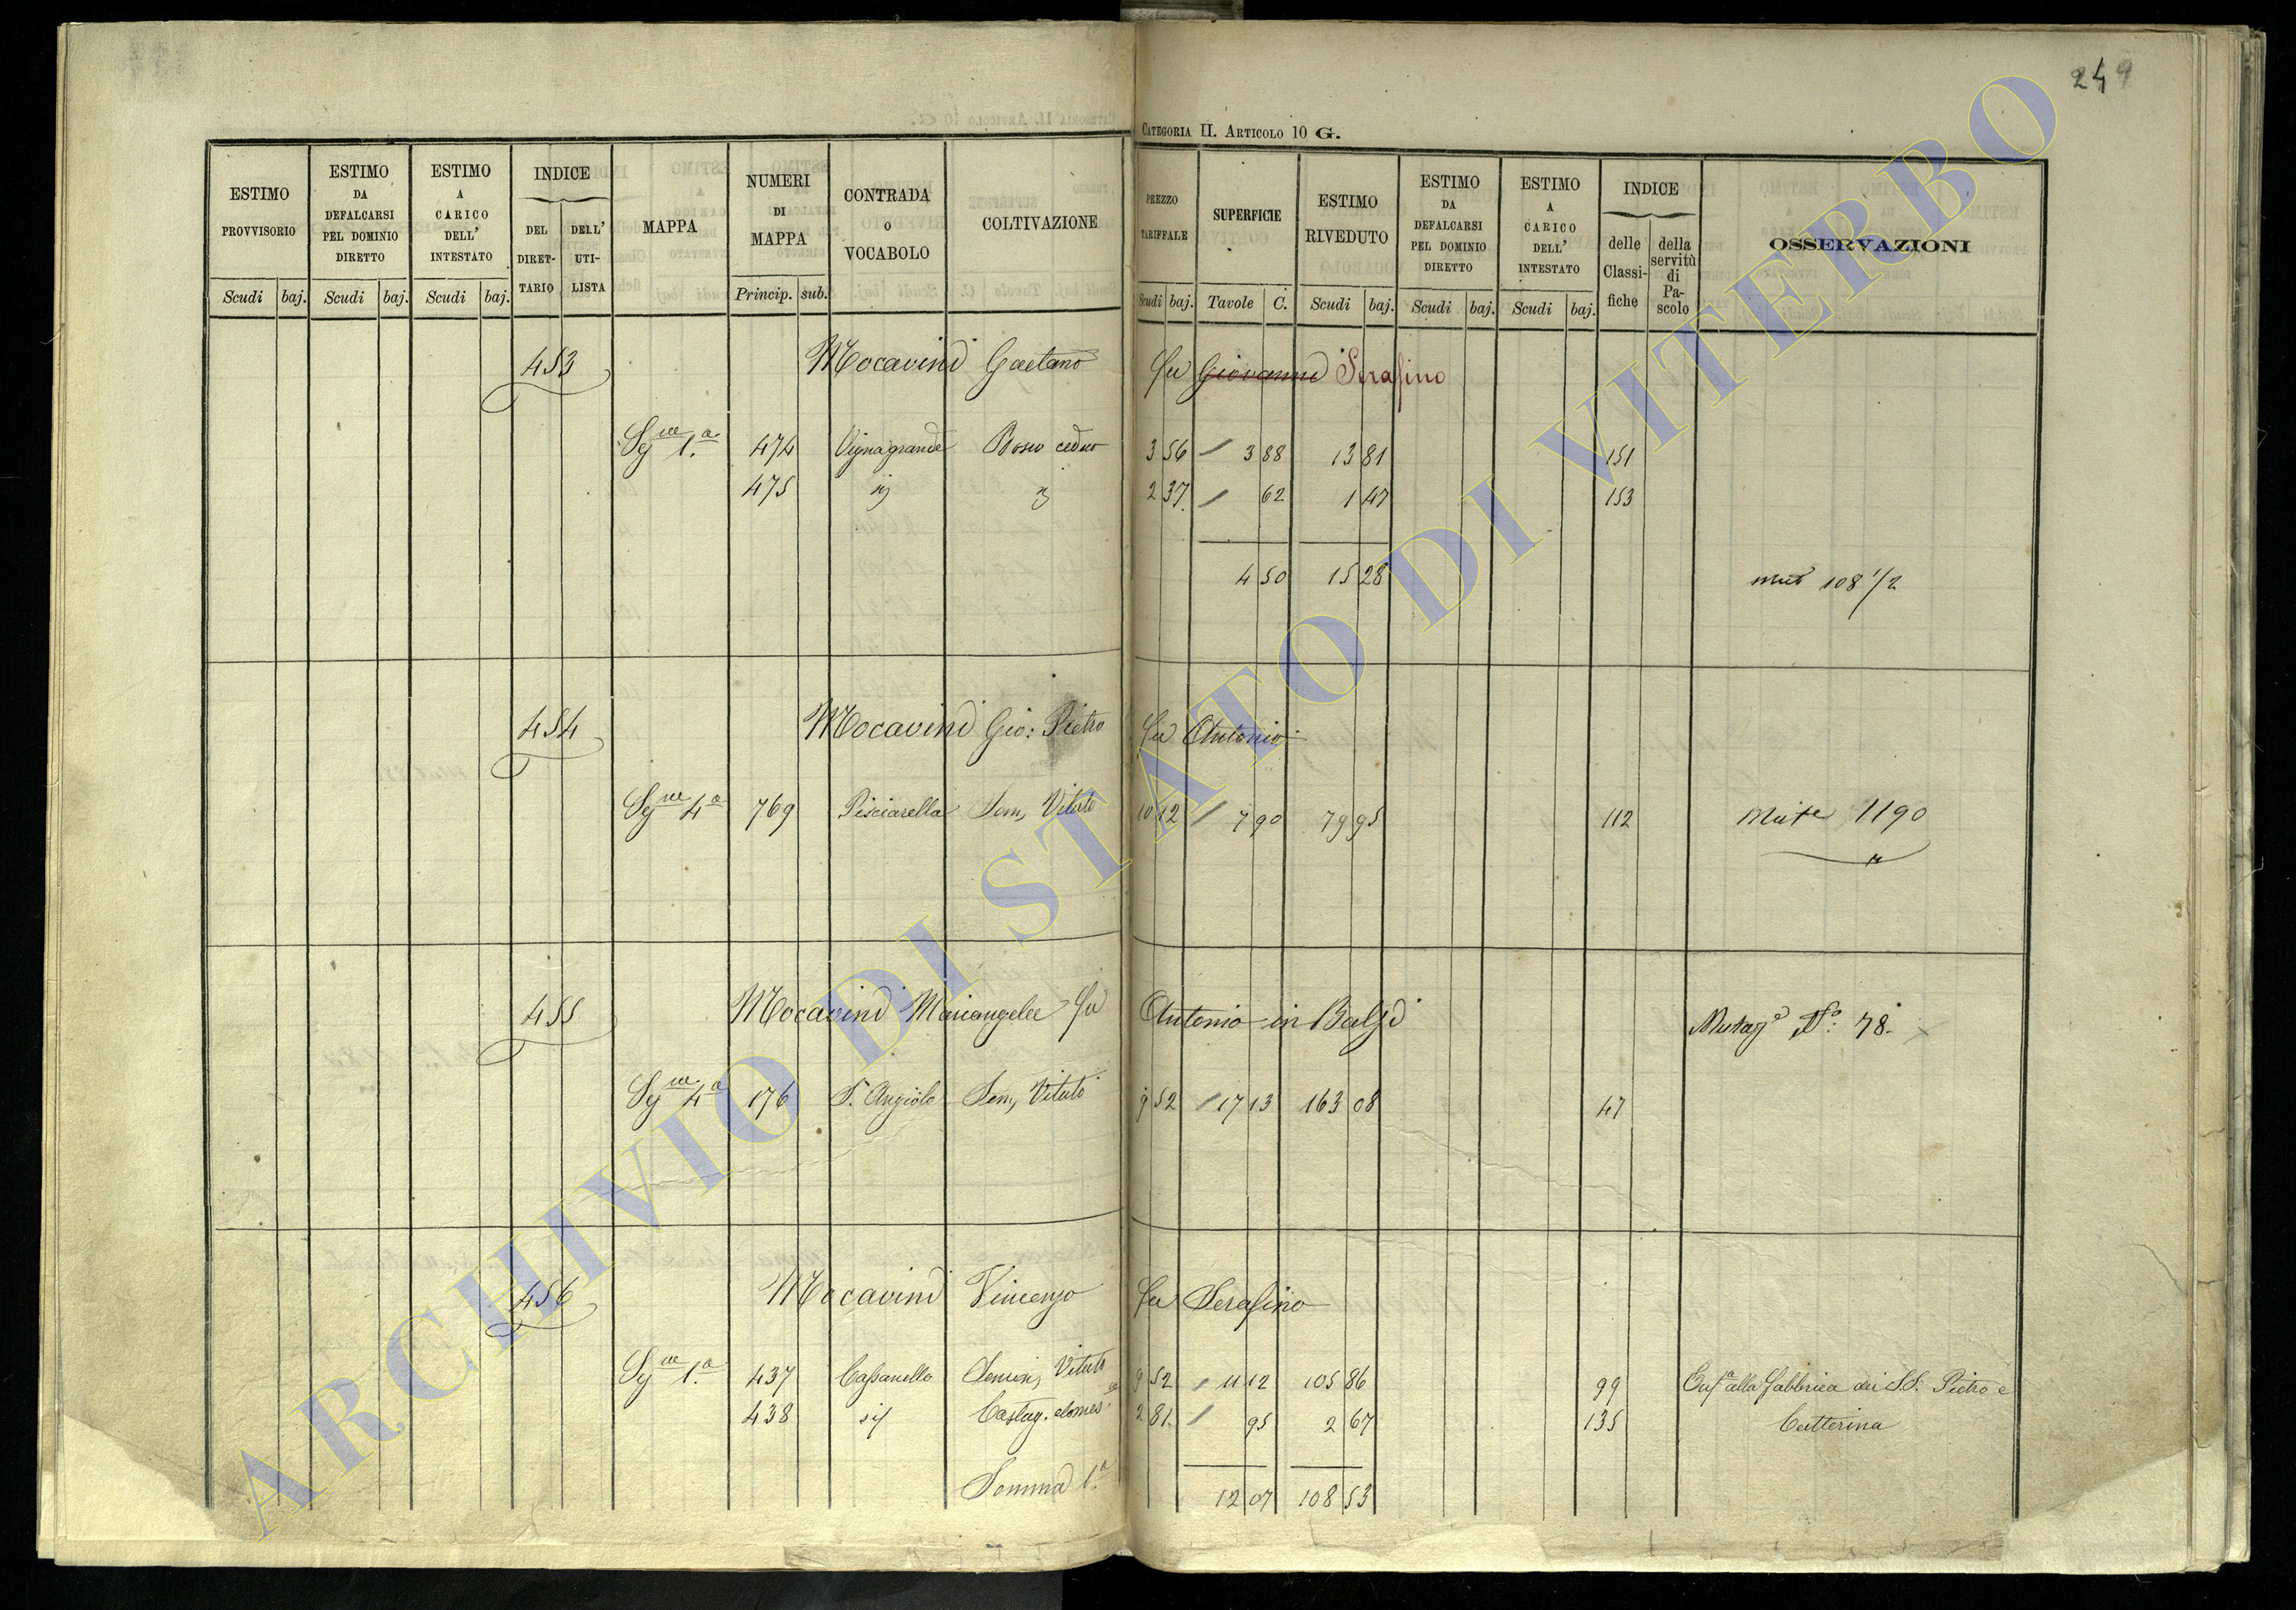 249
CATEGORIA II. ARTICOLO 10 G.
ESTIMO PROVVISORIO
Scudi baj.
ESTIMO DA DEFALCARSI PEL DOMINIO DIRETTO
Scudi baj.
ESTIMO A CARICO DELL' INTESTATO
Scudi baj.
INDICE
DEL DIRET-TARIO
DELL' UTI-LISTA
MAPPA
NUMERI DI MAPPA
Princip. sub.
CONTRADA o VOCABOLO
COLTIVAZIONE
PREZZO TARIFFALE
Scudi baj.
SUPERFICIE
Tavole C.
ESTIMO RIVEDUTO
Scudi baj.
ESTIMO DA DEFALCARSI PEL DOMINIO DIRETTO
Scudi baj.
ESTIMO A CARICO DELL' INTESTATO
Scudi baj.
INDICE
delle Classi-fiche
della servitù di Pa-scolo
OSSERVAZIONI
453 Mocavini Gaetano fu Giovanni Serafino
Sg.ne 1.a 474 Vignagrande Bosco ceduo 3 56 3 88 13 81 151
475 2 37 62 1 47 153
4 50 15 28 mut 108 1/2
454 Mocavini Gio: Pietro fu Antonio
Sg.ne 4a 769 Pisciarella Sem, Vitato 10 12 7 90 79 95 112 1190
455 Mocavini Mariangela fu Antonio in Balzi 78.
Sg.ne 4a 176 S. Angiolo Sem, Vitato 9 52 17 13 163 08 47
456 Mocavini Vincenzo fu Serafino
Sg.ne 1.a 437 Cassanello Semin, Vitato 9 52 11 12 105 86 99 alla Fabbrica dei S.S. Pietro e
438 Castag. domes. 2 81 95 2 67 135 Catterina
Somma 1.a 12 07 108 53
ARCHIVIO DI STATO DI VITERBO